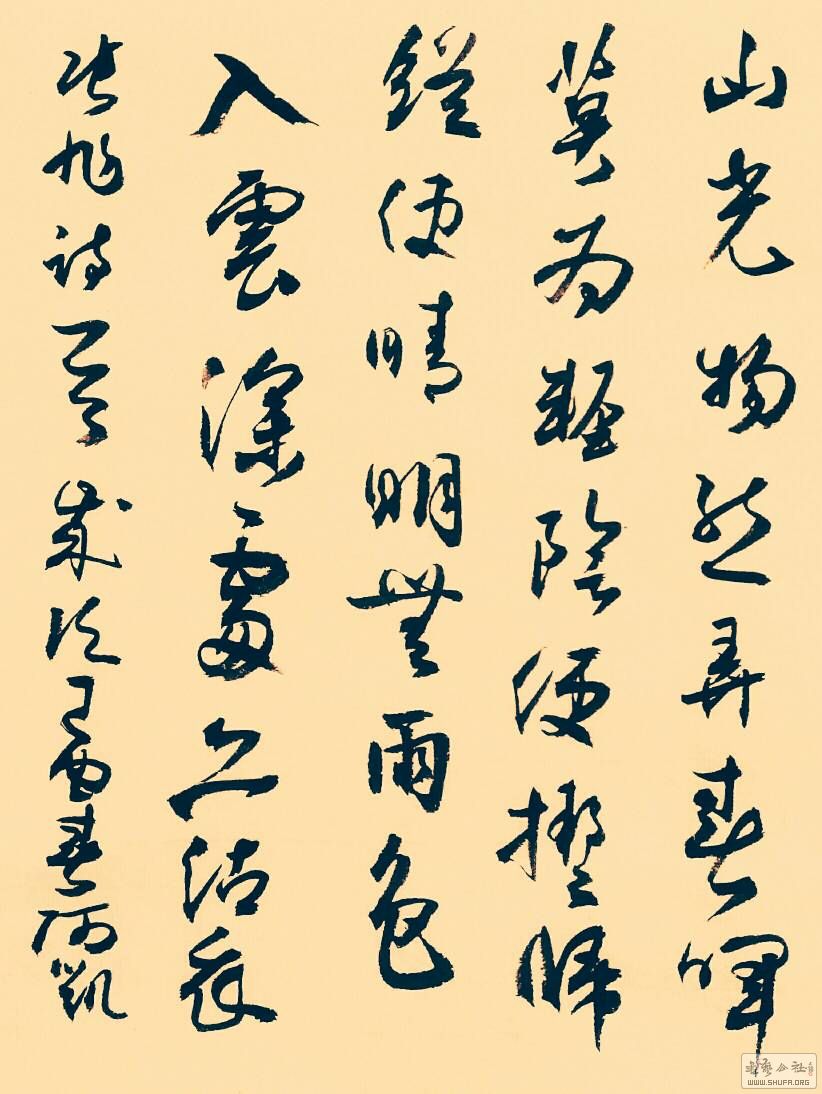 山光物態弄春暉
莫為輕陰便擬歸
縱使晴明無雨色
入雲深處亦沾衣
張旭詩一首歲次丁酉春阿凱
書藝公社
WWW.SHUFA.ORG